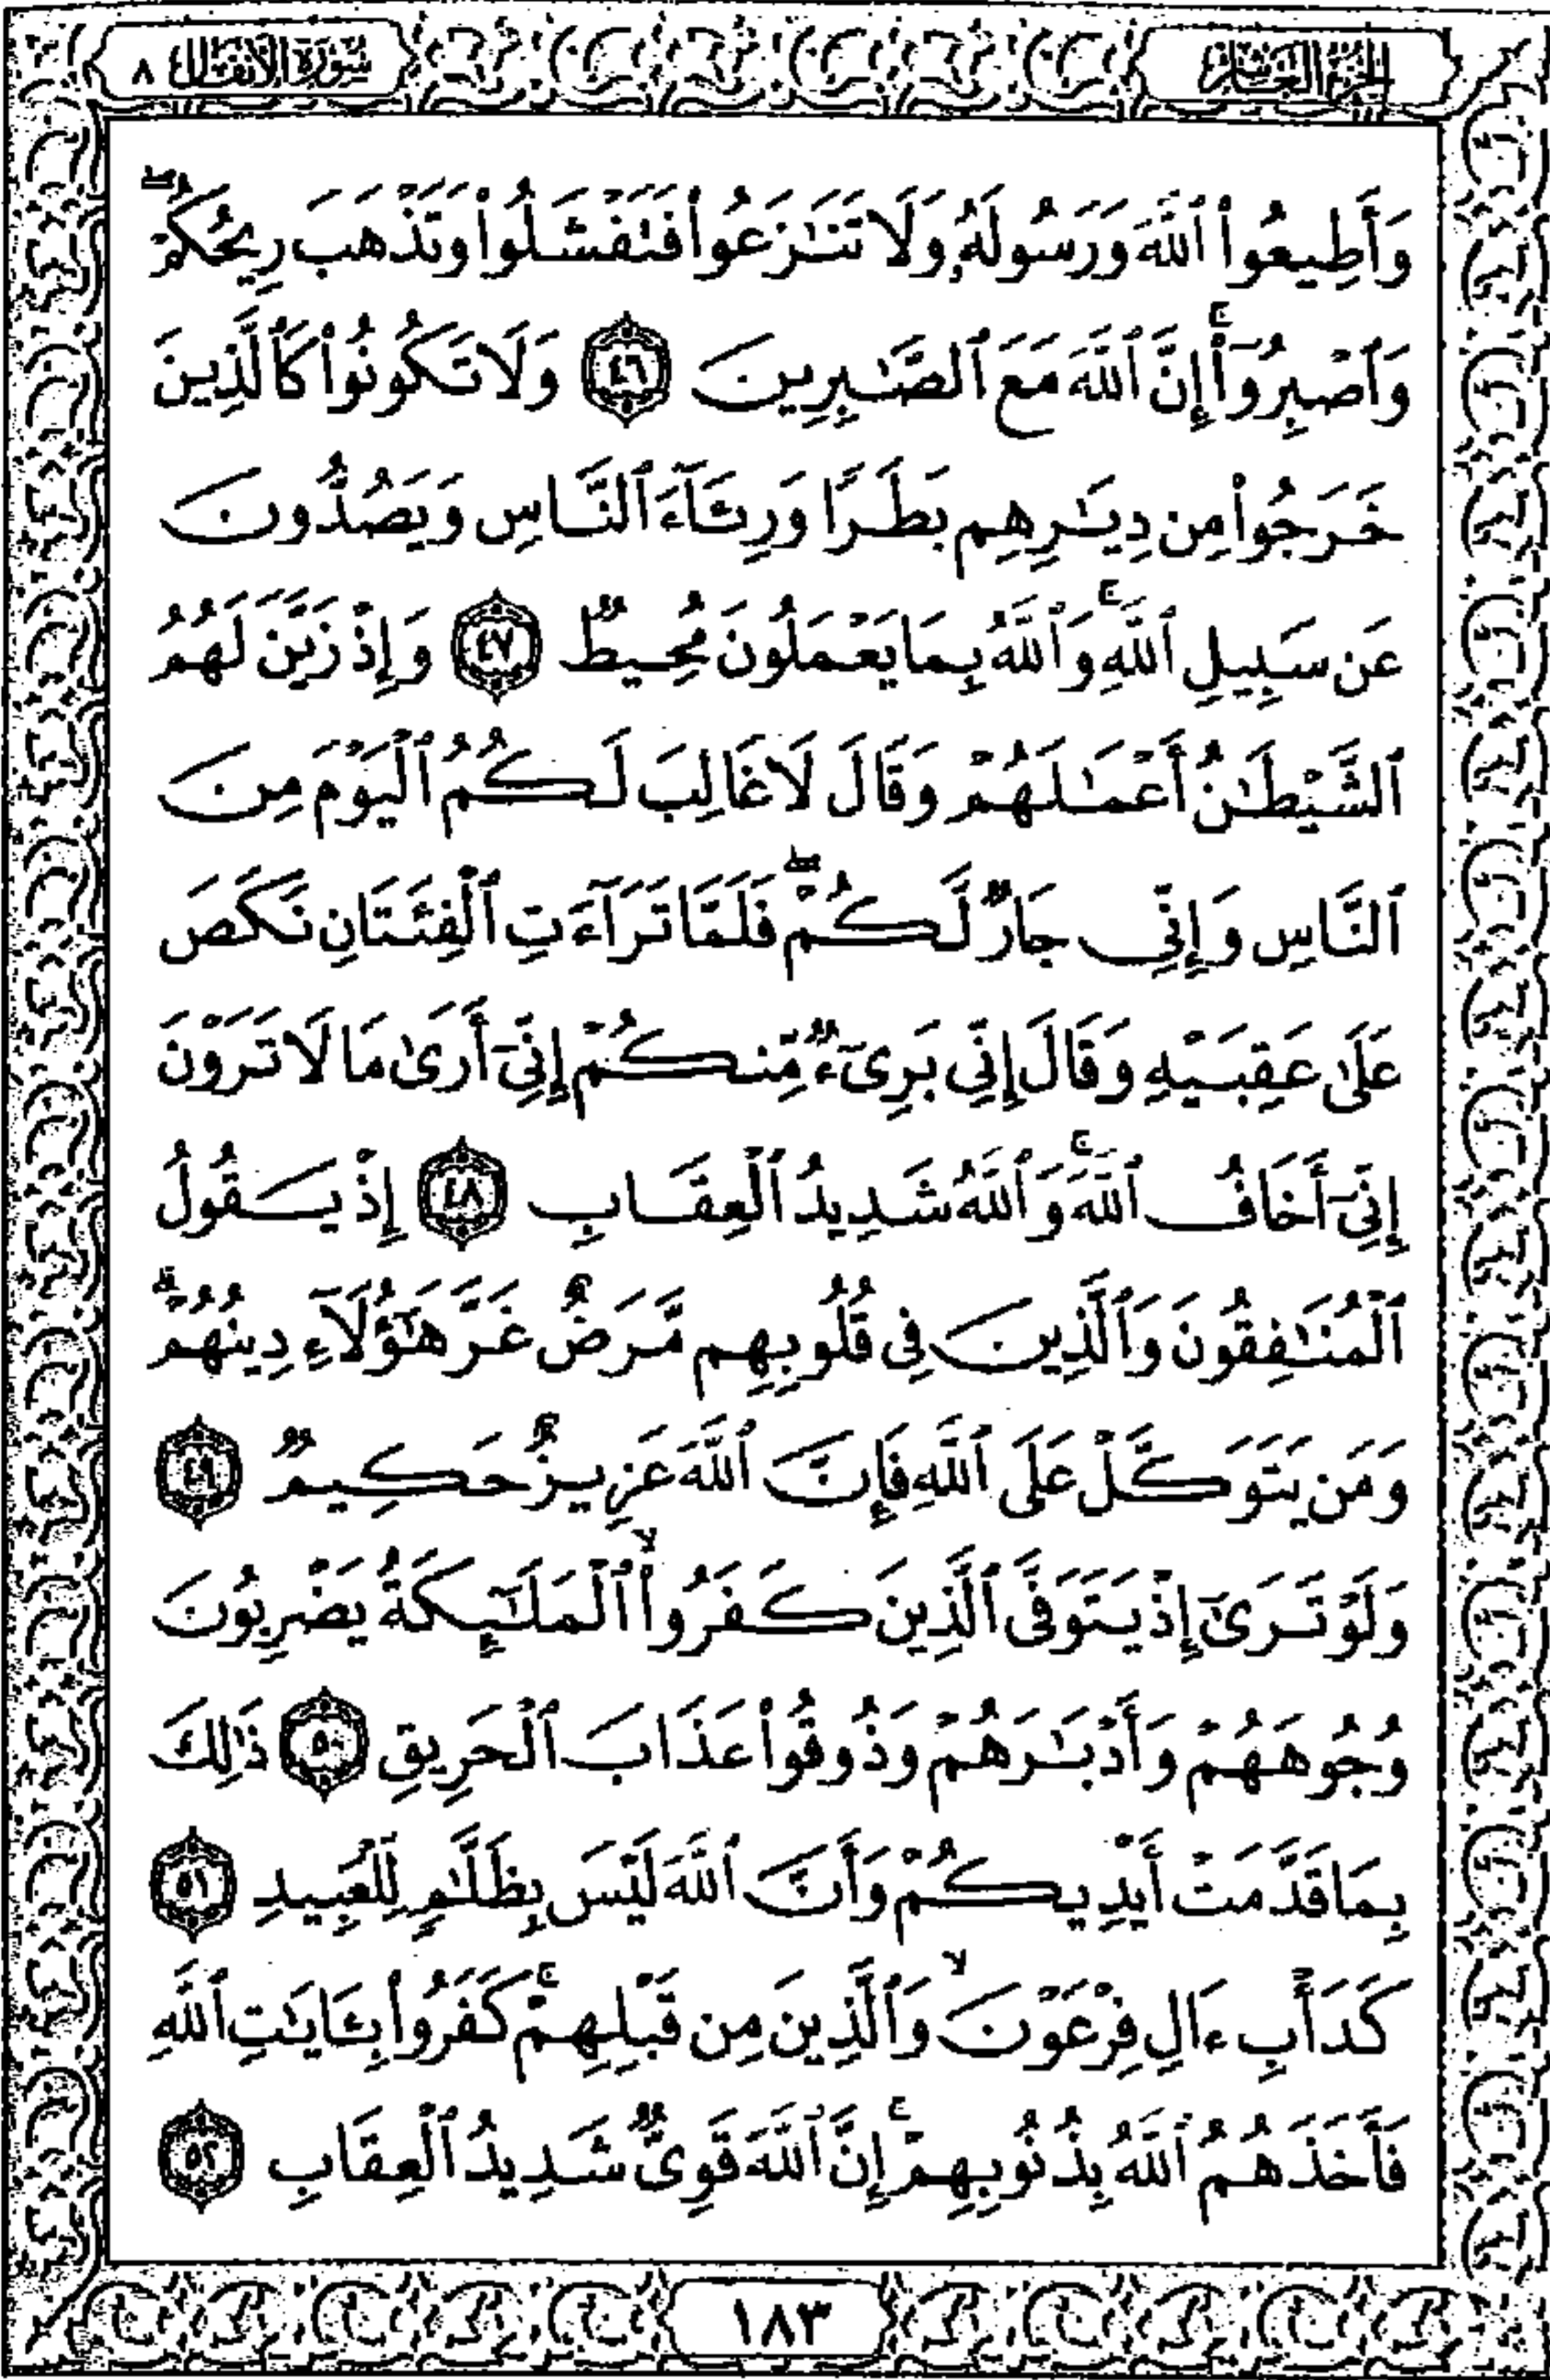 الجزء العاشر
سورة الأنفال ٨
وَأَطِيعُوا۟ ٱللَّهَ وَرَسُولَهُۥ وَلَا تَنَـٰزَعُوا۟ فَتَفْشَلُوا۟ وَتَذْهَبَ رِيحُكُمْ ۖ
وَٱصْبِرُوٓا۟ ۚ إِنَّ ٱللَّهَ مَعَ ٱلصَّـٰبِرِينَ ٤٦ وَلَا تَكُونُوا۟ كَٱلَّذِينَ
خَرَجُوا۟ مِن دِيَـٰرِهِم بَطَرًا وَرِئَآءَ ٱلنَّاسِ وَيَصُدُّونَ
عَن سَبِيلِ ٱللَّهِ ۚ وَٱللَّهُ بِمَا يَعْمَلُونَ مُحِيطٌ ٤٧ وَإِذْ زَيَّنَ لَهُمُ
ٱلشَّيْطَـٰنُ أَعْمَـٰلَهُمْ وَقَالَ لَا غَالِبَ لَكُمُ ٱلْيَوْمَ مِنَ
ٱلنَّاسِ وَإِنِّى جَارٌ لَّكُمْ ۖ فَلَمَّا تَرَآءَتِ ٱلْفِئَتَانِ نَكَصَ
عَلَىٰ عَقِبَيْهِ وَقَالَ إِنِّى بَرِىٓءٌ مِّنكُمْ إِنِّىٓ أَرَىٰ مَا لَا تَرَوْنَ
إِنِّىٓ أَخَافُ ٱللَّهَ ۚ وَٱللَّهُ شَدِيدُ ٱلْعِقَابِ ٤٨ إِذْ يَقُولُ
ٱلْمُنَـٰفِقُونَ وَٱلَّذِينَ فِى قُلُوبِهِم مَّرَضٌ غَرَّ هَـٰٓؤُلَآءِ دِينُهُمْ ۗ
وَمَن يَتَوَكَّلْ عَلَى ٱللَّهِ فَإِنَّ ٱللَّهَ عَزِيزٌ حَكِيمٌ ٤٩
وَلَوْ تَرَىٰٓ إِذْ يَتَوَفَّى ٱلَّذِينَ كَفَرُوا۟ ۙ ٱلْمَلَـٰٓئِكَةُ يَضْرِبُونَ
وُجُوهَهُمْ وَأَدْبَـٰرَهُمْ وَذُوقُوا۟ عَذَابَ ٱلْحَرِيقِ ٥٠ ذَٰلِكَ
بِمَا قَدَّمَتْ أَيْدِيكُمْ وَأَنَّ ٱللَّهَ لَيْسَ بِظَلَّـٰمٍ لِّلْعَبِيدِ ٥١
كَدَأْبِ ءَالِ فِرْعَوْنَ ۙ وَٱلَّذِينَ مِن قَبْلِهِمْ ۚ كَفَرُوا۟ بِـَٔايَـٰتِ ٱللَّهِ
فَأَخَذَهُمُ ٱللَّهُ بِذُنُوبِهِمْ ۚ إِنَّ ٱللَّهَ قَوِىٌّ شَدِيدُ ٱلْعِقَابِ ٥٢
١٨٣